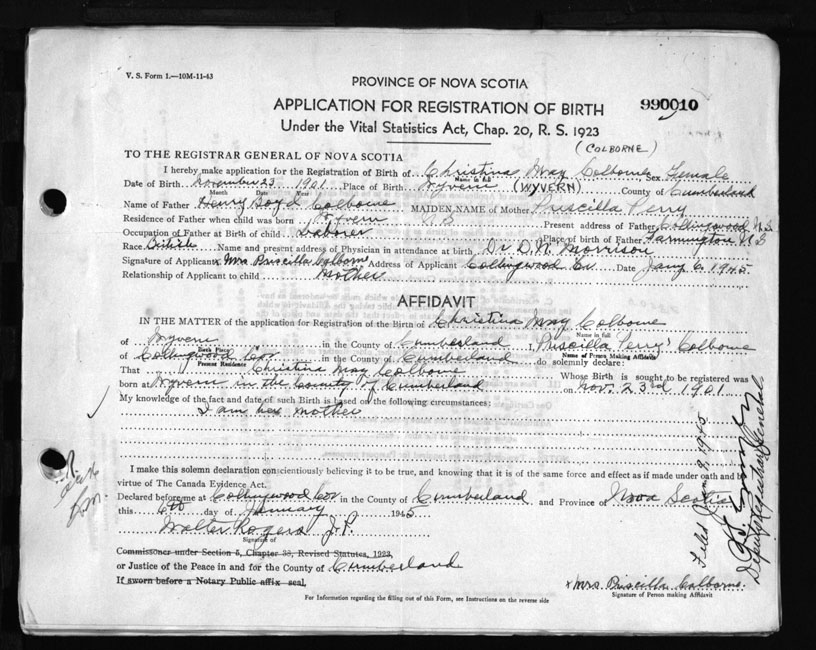 V. S. Form 1.—10M-11-43
PROVINCE OF NOVA SCOTIA
APPLICATION FOR REGISTRATION OF BIRTH
990010
Under the Vital Statistics Act, Chap. 20, R. S. 1923
(COLBORNE)
TO THE REGISTRAR GENERAL OF NOVA SCOTIA
I hereby make application for the Registration of Birth of Christina May Colborne Sex Female
Name in full
Date of Birth November 23 1901 Place of Birth Wyvern (WYVERN) County of Cumberland
Month Date Year
Name of Father Henry Boyd Colborne MAIDEN NAME of Mother Priscilla Perry
Residence of Father when child was born Wyvern Present address of Father Collingwood N.S
Occupation of Father at Birth of child Laborer Place of birth of Father Farmington N S
Race British Name and present address of Physician in attendance at birth Dr D. N. Morrison
Signature of Applicant x Mrs Priscilla Colborne Address of Applicant Collingwood Cor Date Jany 6 1945.
Relationship of Applicant to child mother
AFFIDAVIT
IN THE MATTER of the application for Registration of the Birth of Christina May Colborne
Name in full
of Wyvern in the County of Cumberland I, Priscilla Perry Colborne
Birth Place Name of Person Making Affidavit
of Collingwood Cor in the County of Cumberland do solemnly declare:
Present Residence
That Christina May Colborne Whose Birth is sought to be registered was
born at Wyvern in the County of Cumberland on Nov. 23rd 1901
My knowledge of the fact and date of such Birth is based on the following circumstances:
I am her mother
I make this solemn declaration conscientiously believing it to be true, and knowing that it is of the same force and effect as if made under oath and by
virtue of The Canada Evidence Act.
Declared before me at Collingwood Cor in the County of Cumberland and Province of Nova Scotia
this 6th day of January 1945
Walter Rogers J.P.
Signature of
Commissoner under Section 5, Chapter 38, Revised Statutes, 1923,
or Justice of the Peace in and for the County of Cumberland
If sworn before a Notary Public affix seal.
x Mrs. Priscilla Colborne.
Signature of Person making Affidavit
For Information regarding the filling out of this Form, see Instructions on the reverse side
Filed Jan 9, 1945
Deputy Registrar General